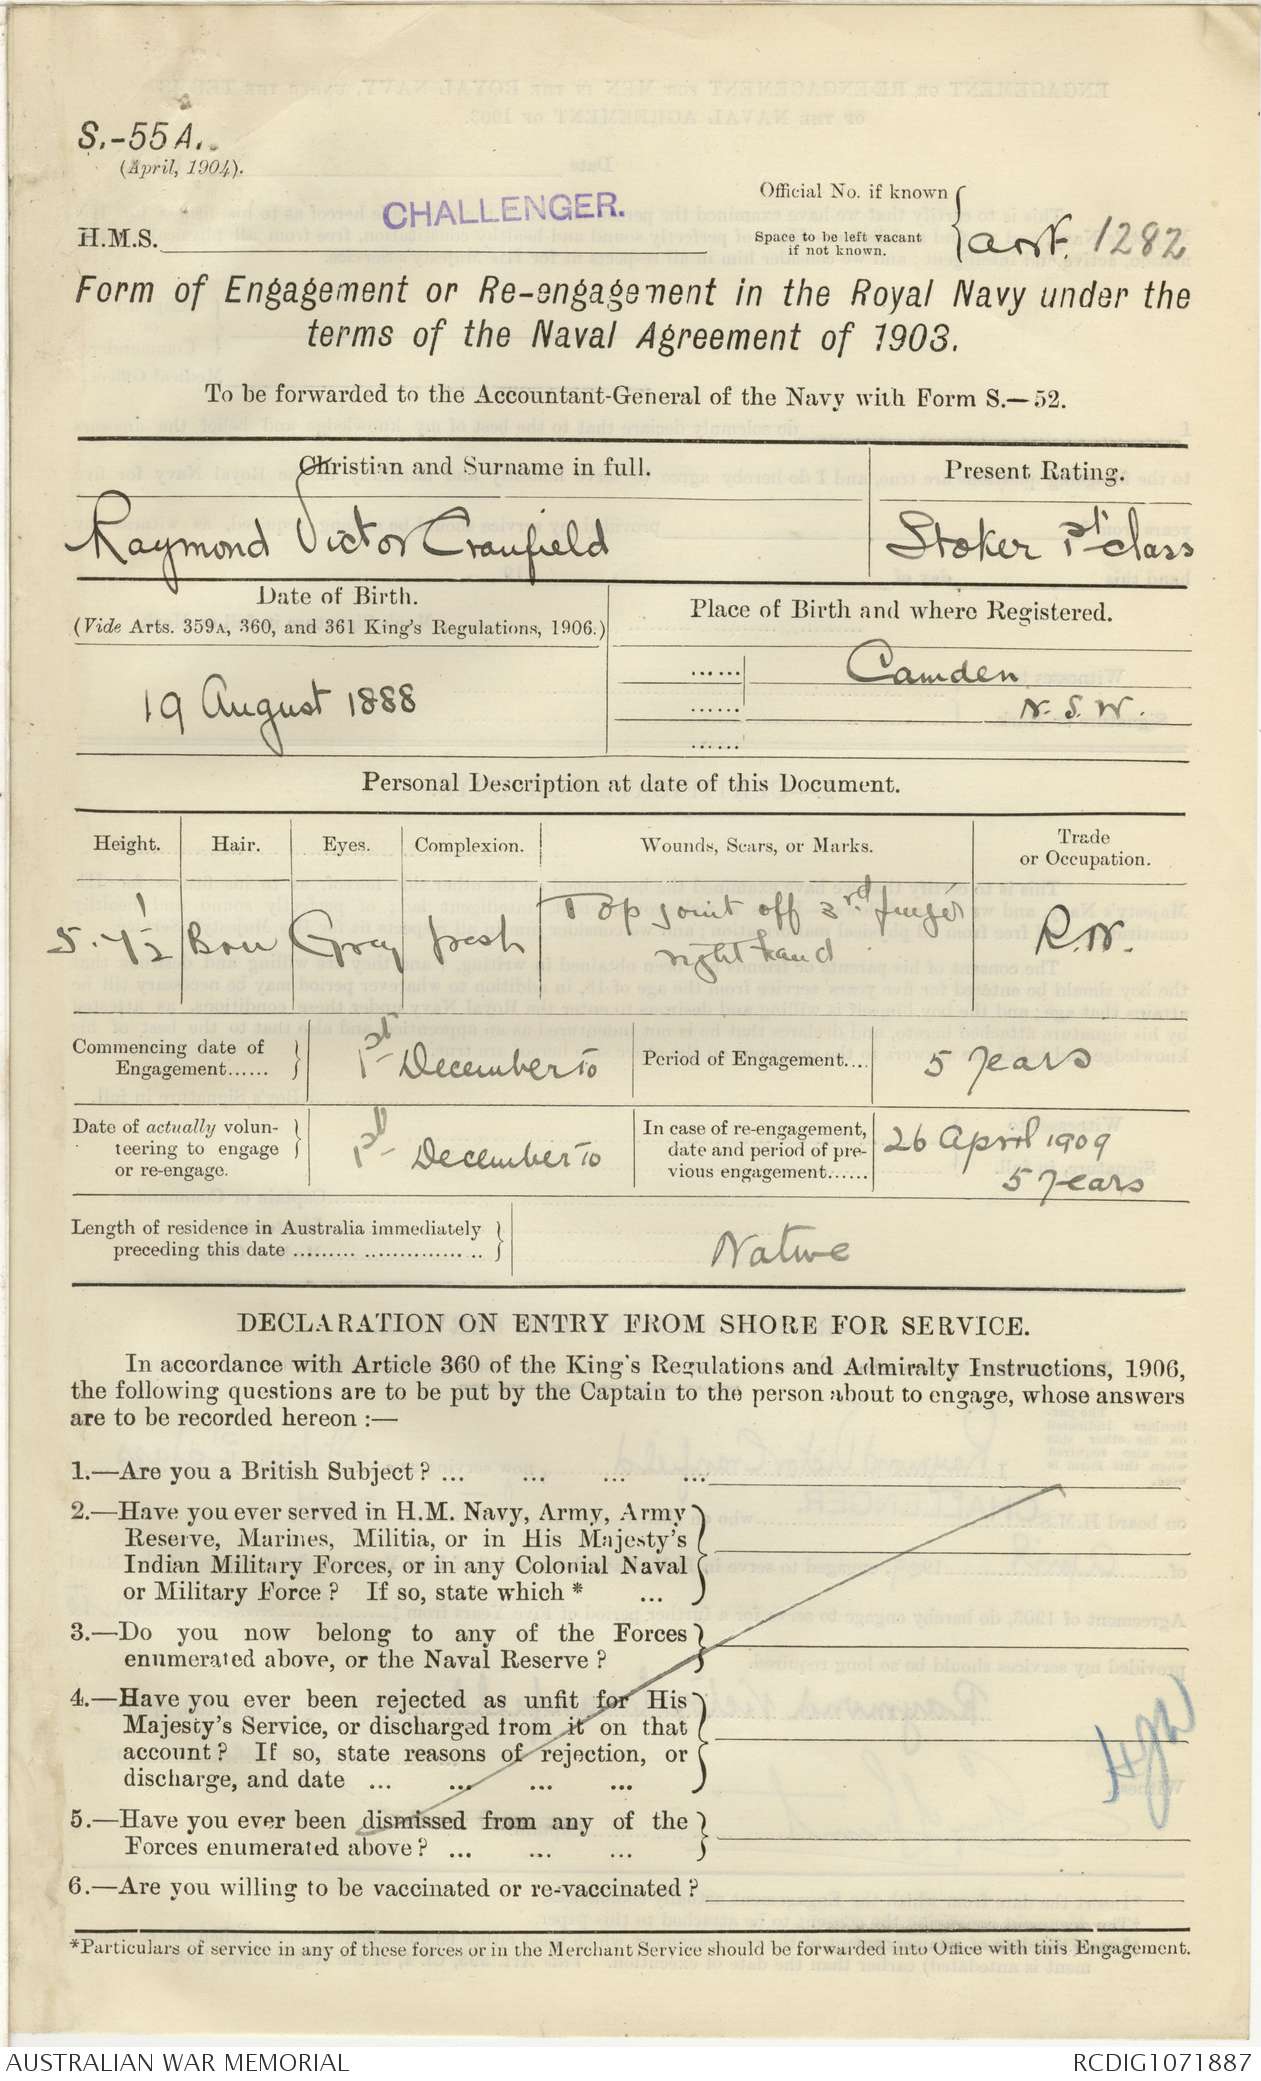 S.-55A.
(April, 1904).
CHALLENGER.
H.M.S.
Official No. if known
Space to be left vacant
if not known.
Aost. 1282
Form of Engagement or Re-engagement in the Royal Navy under the
terms of the Naval Agreement of 1903.
To be forwarded to the Accountant-General of the Navy with Form S.—52.
Christian and Surname in full.
Present Rating.
Raymond Victor Cranfield
Stoker 1st class
Date of Birth.
(Vide Arts. 359A, 360, and 361 King's Regulations, 1906.)
Place of Birth and where Registered.
19 August 1888
Camden
N.S.W.
Personal Description at date of this Document.
Height. Hair. Eyes. Complexion. Wounds, Scars, or Marks. Trade or Occupation.
5.7½ Brn Grey fresh Top joint off 3rd finger
right hand
R.N.
Commencing date of
Engagement......
1st December 10
Period of Engagement....
5 years
Date of actually volun-
teering to engage
or re-engage.
1st December 10
In case of re-engagement,
date and period of pre-
vious engagement......
26 April 1909
5 years
Length of residence in Australia immediately
preceding this date ......... .................. ..
Native
DECLARATION ON ENTRY FROM SHORE FOR SERVICE.
In accordance with Article 360 of the King's Regulations and Admiralty Instructions, 1906,
the following questions are to be put by the Captain to the person about to engage, whose answers
are to be recorded hereon :—
1.—Are you a British Subject ? ... ... ... ...
2.—Have you ever served in H.M. Navy, Army, Army
Reserve, Marines, Militia, or in His Majesty's
Indian Military Forces, or in any Colonial Naval
or Military Force ? If so, state which * ...
3.—Do you now belong to any of the Forces
enumerated above, or the Naval Reserve ?
4.—Have you ever been rejected as unfit for His
Majesty's Service, or discharged from it on that
account ? If so, state reasons of rejection, or
discharge, and date ... ... ... ...
5.—Have you ever been dismissed from any of the
Forces enumerated above ? ... ... ...
6.—Are you willing to be vaccinated or re-vaccinated ?
*Particulars of service in any of these forces or in the Merchant Service should be forwarded into Office with this Engagement.
AUSTRALIAN WAR MEMORIAL
RCDIG1071887